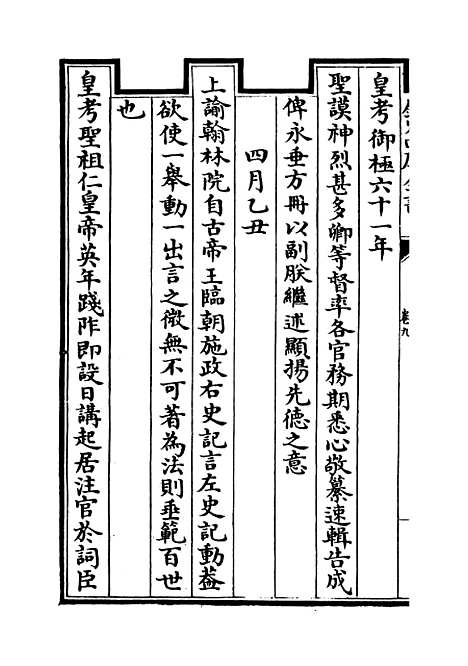 皇考御極六十一年
聖謨神烈甚多卿等督率各官務期悉心敬纂速輯告成
俾永垂方冊以副朕繼述顯揚先德之意
四月乙丑
上諭翰林院自古帝王臨朝施政右史記言左史記動葢
欲使一舉動一出言之微無不可著為法則垂範百世
也
皇考聖祖仁皇帝英年踐阼即設日講起居注官於詞臣
卷九